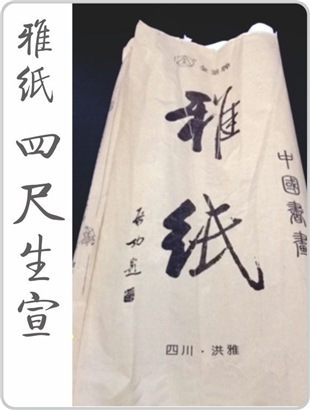 雅纸 四尺生宣
雅纸
中國書畫
启功题
四川·洪雅